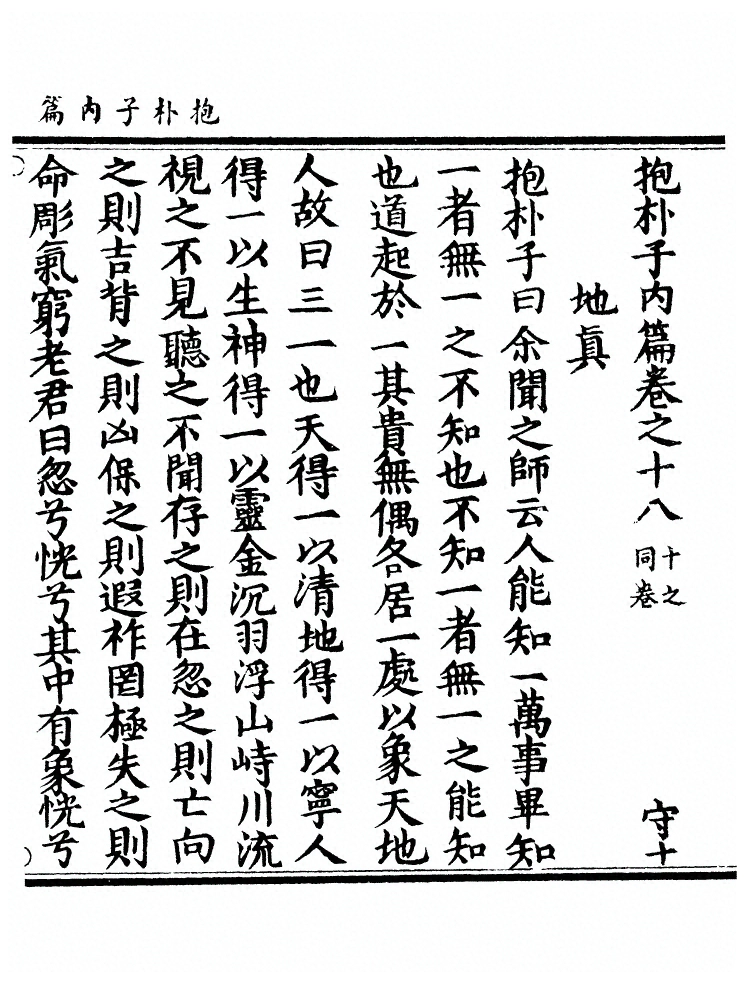 抱朴子内篇
抱朴子内篇卷之十八 十之
同卷 守十
地真
抱朴子曰余聞之師云人能知一萬事畢知
一者無一之不知也不知一者無一之能知
也道起於一其貴無偶各居一處以象天地
人故曰三一也天得一以清地得一以寧人
得一以生神得一以靈金沉羽浮山峙川流
視之不見聽之不聞存之則在忽之則亡向
之則吉背之則凶保之則遐祚罔極失之則
命彫氣窮老君曰忽兮恍兮其中有象恍兮